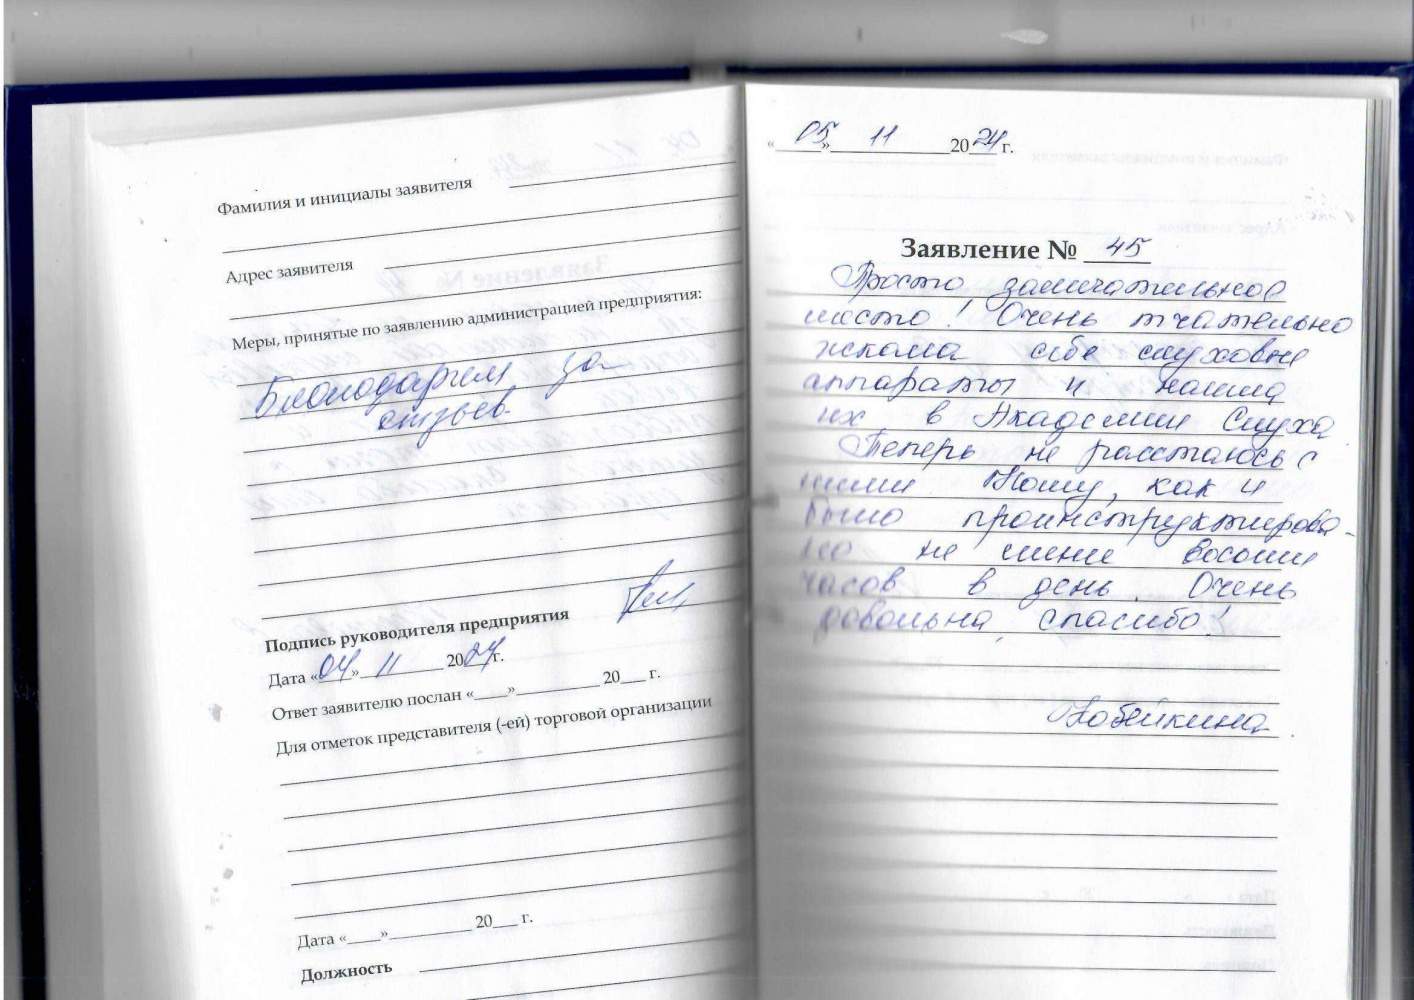 Фамилия и инициалы заявителя
Адрес заявителя
Меры, принятые по заявлению администрацией предприятия:
Благодарим за
отзыв.
Подпись руководителя предприятия
Дата «04» 11 2024г.
Ответ заявителю послан «____»__________ 20___ г.
Для отметок представителя (-ей) торговой организации
Дата «____»__________ 20___ г.
Должность
«05» 11 2024 г.
Заявление № 45
Просто замечательное
место! Очень тщательно
искала себе слуховые
аппараты и нашла
их в Академии Слуха.
Теперь не расстаюсь с
ними. Ношу, как и
было проинструктирова-
но не менее восьми
часов в день. Очень
довольна, спасибо!
Кобейкина.